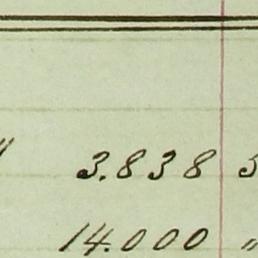 " 3.838 5
14.000 "